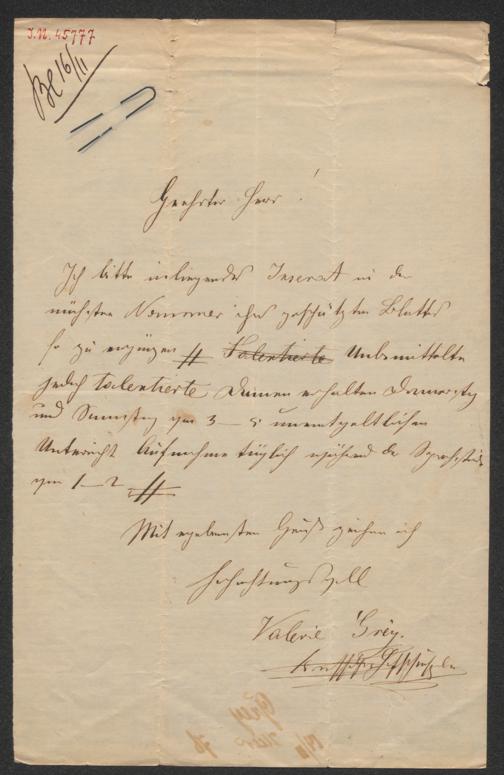 I.N. 45777
16/11
Geehrter Herr!
Ich bitte inliegendes Inserat in der
nächsten Nommer ihres geschätzten Blattes
so zu ergänzen // Talentierte Unbemittelte
jedoch talentierte Damen erhalten Donnerstag
und Samstag von 3–5 unentgeltlichen
Unterricht Aufnahme täglich während der Sprechstunde
von 1–2 //
Mit ergebensten Gruß zeichne ich
Hochachtungsvoll
Valerie Gréy.